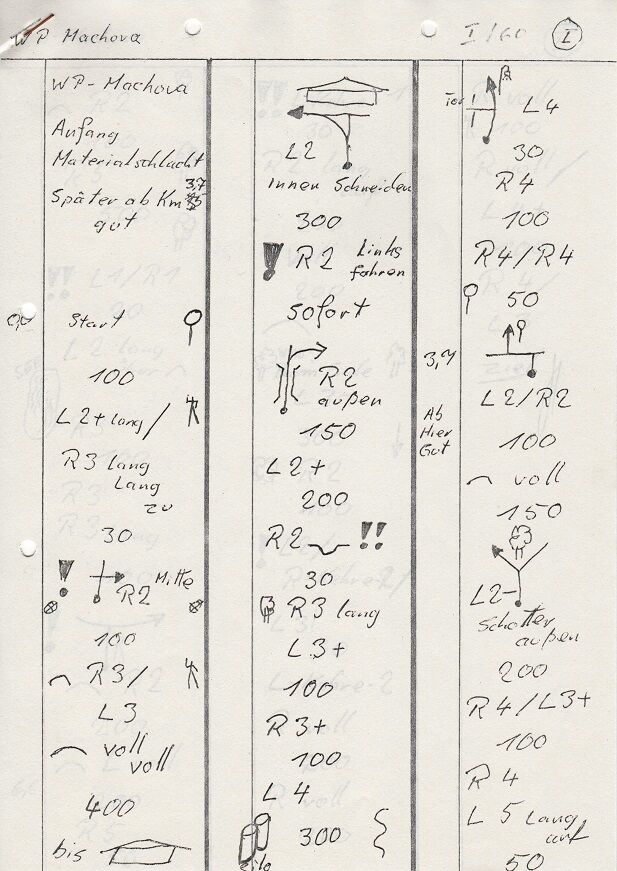 WP Machova
I/60 I
WP-Machova
Anfang
Materialschlacht
Später ab Km 3,7
gut
0,0 Start
100
L2+ lang/
R3 lang
Lang
zu
30
! R2 Mitte
100
R3/
L3
voll
voll
400
bis
L2
innen Schneiden
300
! R2 Links
fahren
sofort
R2
außen
150
L2+
200
R2 !!
30
R3 lang
L3+
100
R3+
100
L4
300
Silo
Tor L4
30
R4
100
R4/R4
50
3,7
L2/R2
Ab
Hier
Gut
100
voll
150
L2-
Schotter
außen
200
R4/L3+
100
R4
L5 Lang
auf
50